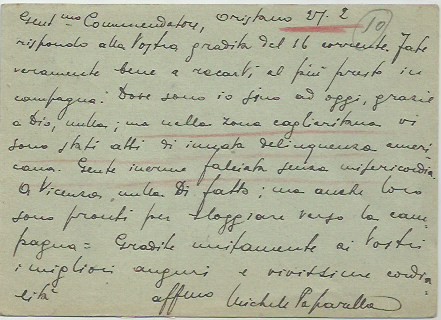 Gent.mo Commendatore, Oristano 27.2
10
rispondo alla Vostra gradita del 16 corrente. Fate
veramente bene a recarvi al più presto in
campagna. Dove sono io fino ad oggi, grazie
a Dio, nulla; ma nella zona cagliaritana vi
sono stati atti di innata delinquenza ameri
cana. Gente inerme falciata senza misericordia.
A Vicenza, nulla di fatto; ma anche loro
sono pronti per sloggiare verso la cam=
pagna= Gradite unitamente ai Vostri
i migliori auguri e vivissime cordia
lità affmo Michele Paparella